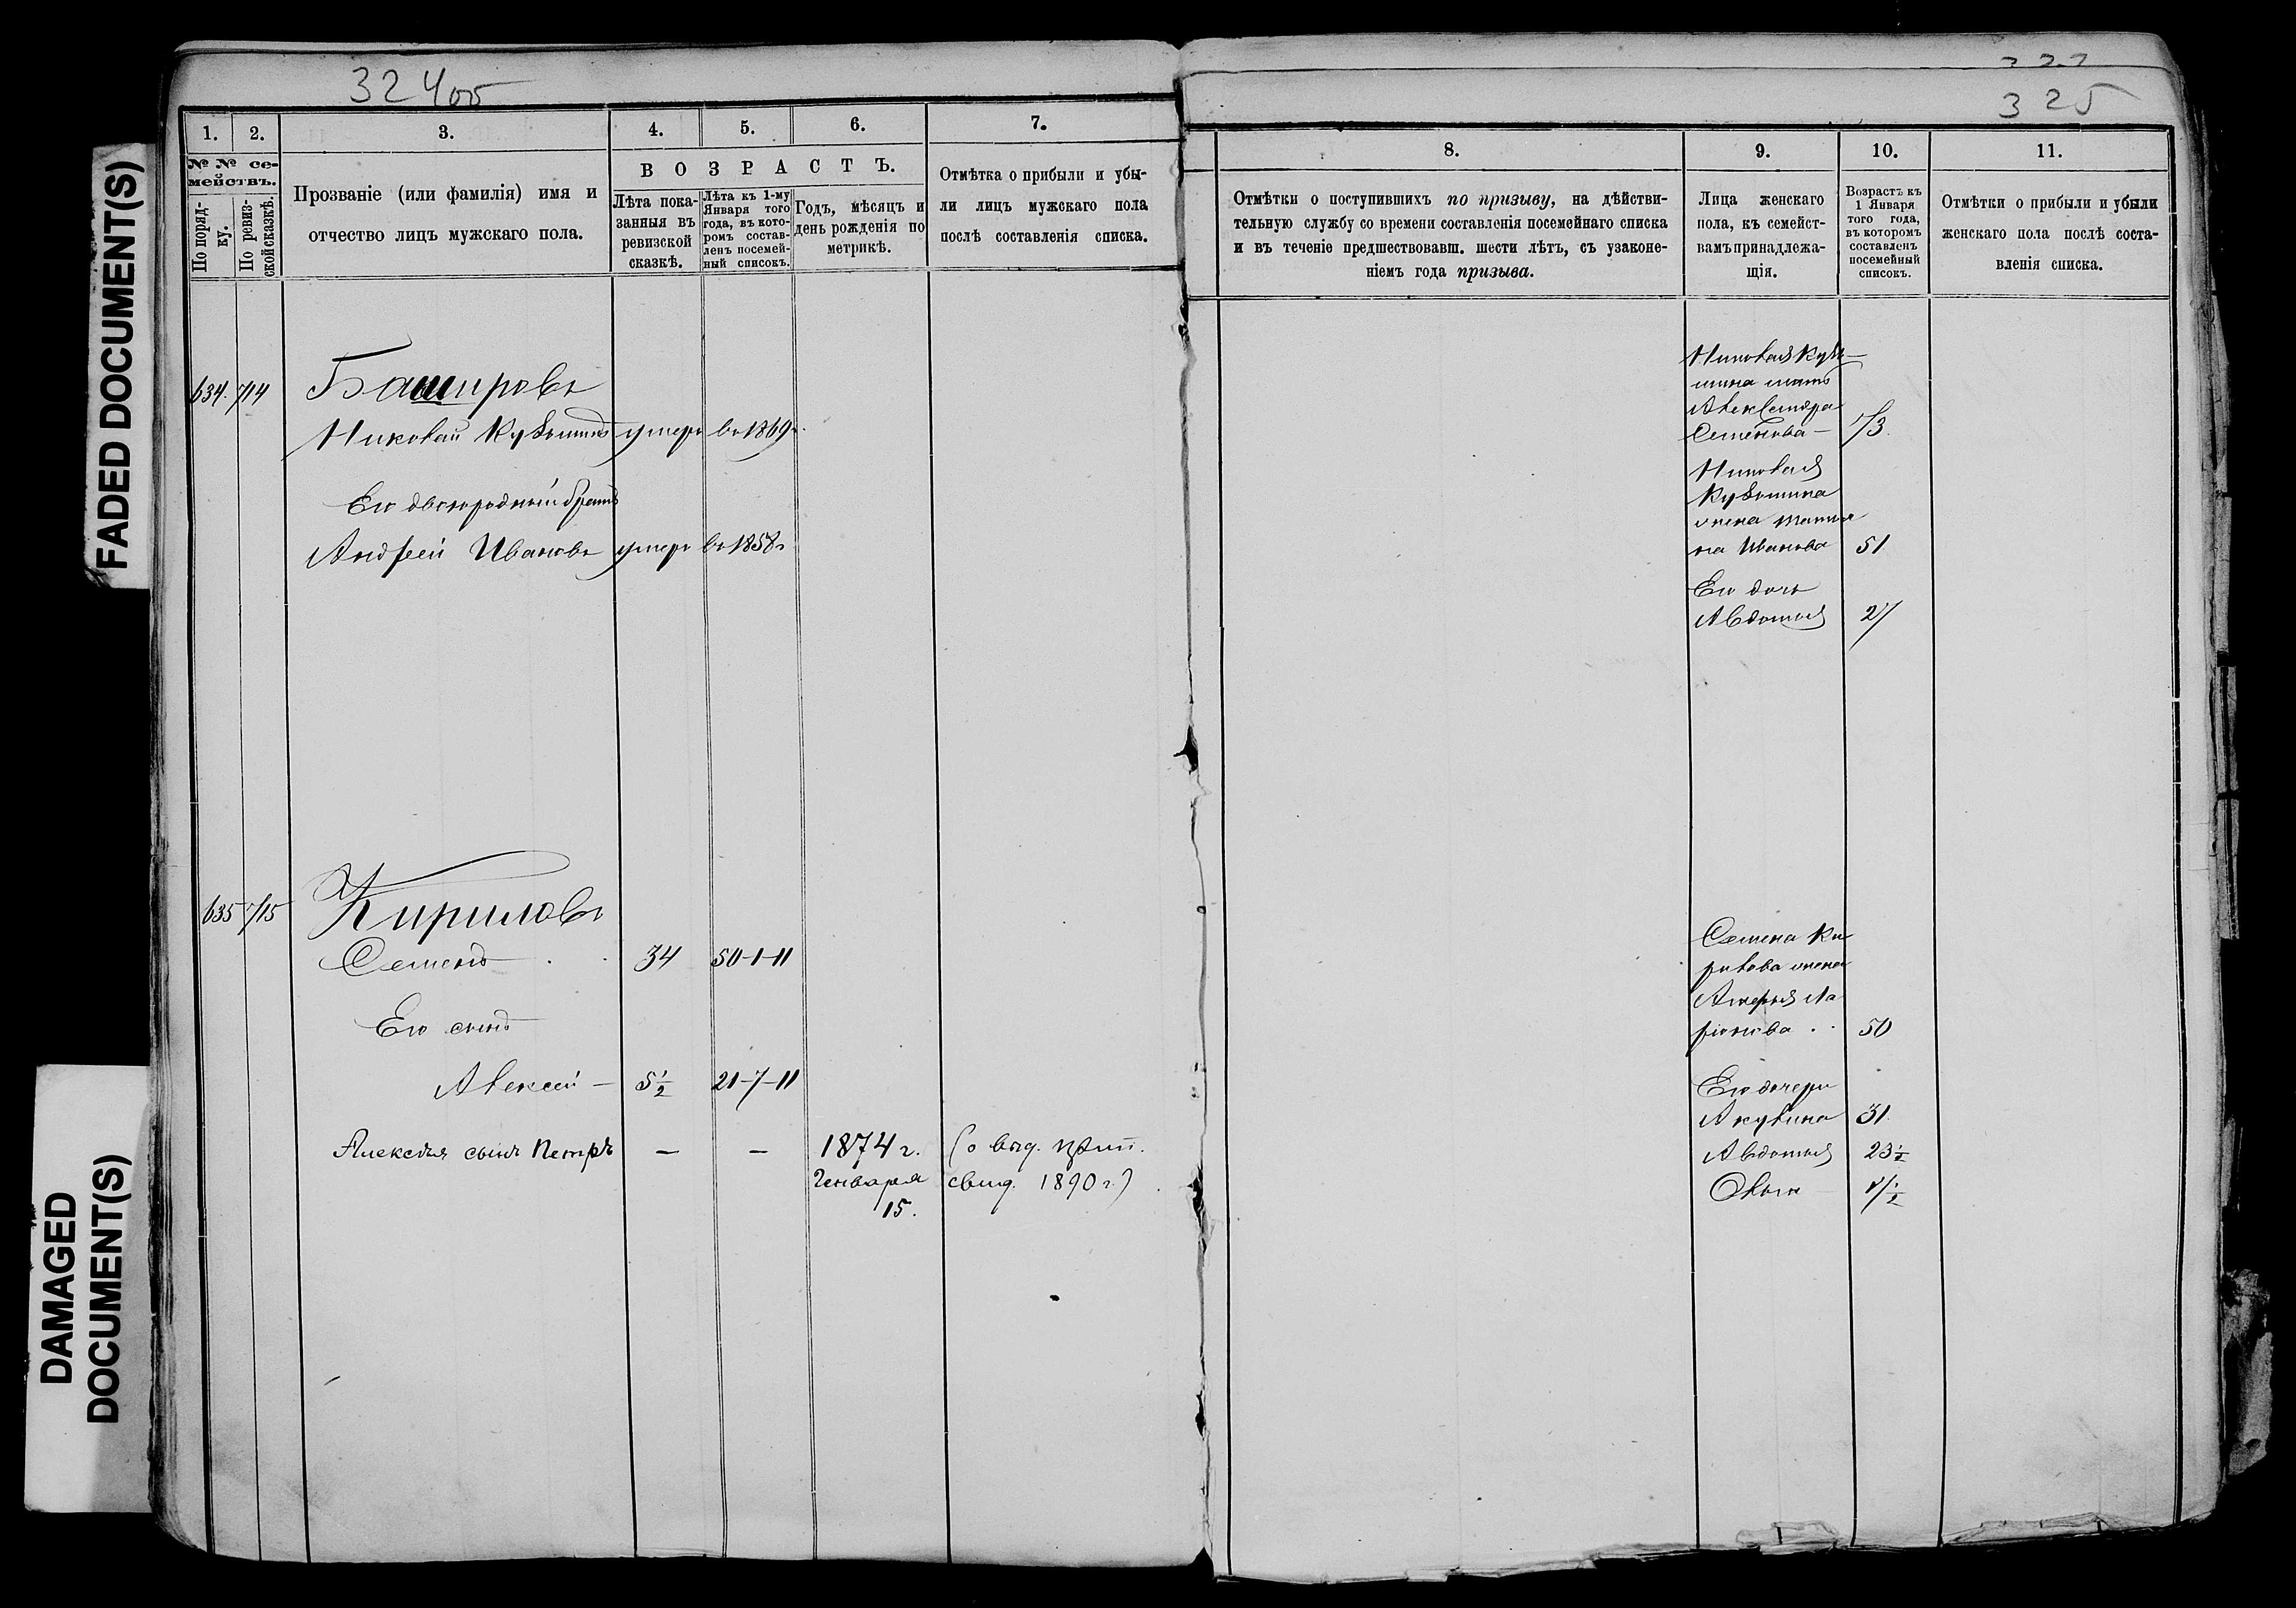 FADED DOCUMENT(S)
DAMAGED
DOCUMENT(S)
324об
1. 2. 3. 4. 5. 6. 7.
№ № се-
мействъ.
По поряд-
ку.
По ревиз-
ской сказкѣ.
Прозваніе (или фамилія) имя и
отчество лицъ мужскаго пола.
ВОЗРАСТЪ.
Лѣта пока-
занныя въ
ревизской
сказкѣ.
Лѣта къ 1-му
Января того
года, въ кото-
ромъ состав-
ленъ посемей-
ный списокъ.
Годъ, мѣсяцъ и
день рожденія по
метрикѣ.
Отмѣтка о прибыли и убы-
ли лицъ мужскаго пола
послѣ составленія списка.
634. 714 Башировъ
Николай Кузьминъ умеръ въ 1869г.
Его двоюродный братъ
Андрей Ивановъ умеръ въ 1858г
635 715 Кириловъ
Семенъ 34 50-1-11
Его сынъ
Алексей — 5 1/2 21-7-11
Алексѣя сынъ Петръ — — 1874 г. (о выд.
Генваря свид. 1890 г.)
15.
325
8. 9. 10. 11.
Отмѣтки о поступившихъ по призыву, на дѣйстви-
тельную службу со времени составленія посемейнаго списка
и въ теченіе предшествовавш. шести лѣтъ, съ узаконе-
ніемъ года призыва.
Лица женскаго
пола, къ семейст-
вамъ принадлежа-
щія.
Возрастъ къ
1 Января
того года,
въ которомъ
составленъ
посемейный
списокъ.
Отмѣтки о прибыли и убыли
женскаго пола послѣ соста-
вленія списка.
Николая Кузь-
мина мать
Александра
Семенова — 73.
Николая
Кузьмина
жена Татья
на Иванова 51
Его дочь
Авдотья 27
Семена Ки
рилова жена
Ла
ріонова 50
Его дочери
Акулина 31.
Авдотья 23 1/2
Ольга 7 1/2